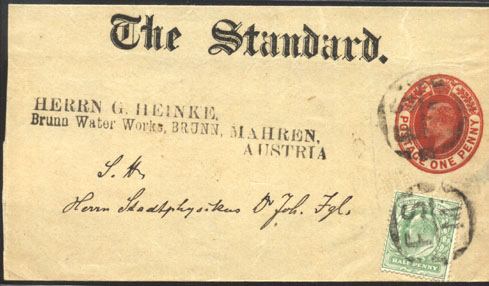 The Standard.
HERRN G. HEINKE,
Brunn Water Works, BRUNN, MAHREN,
AUSTRIA
POSTAGE ONE PENNY
S. H.
Herrn Stadtphysikus Dr Joh. Igl.
HALF PENNY